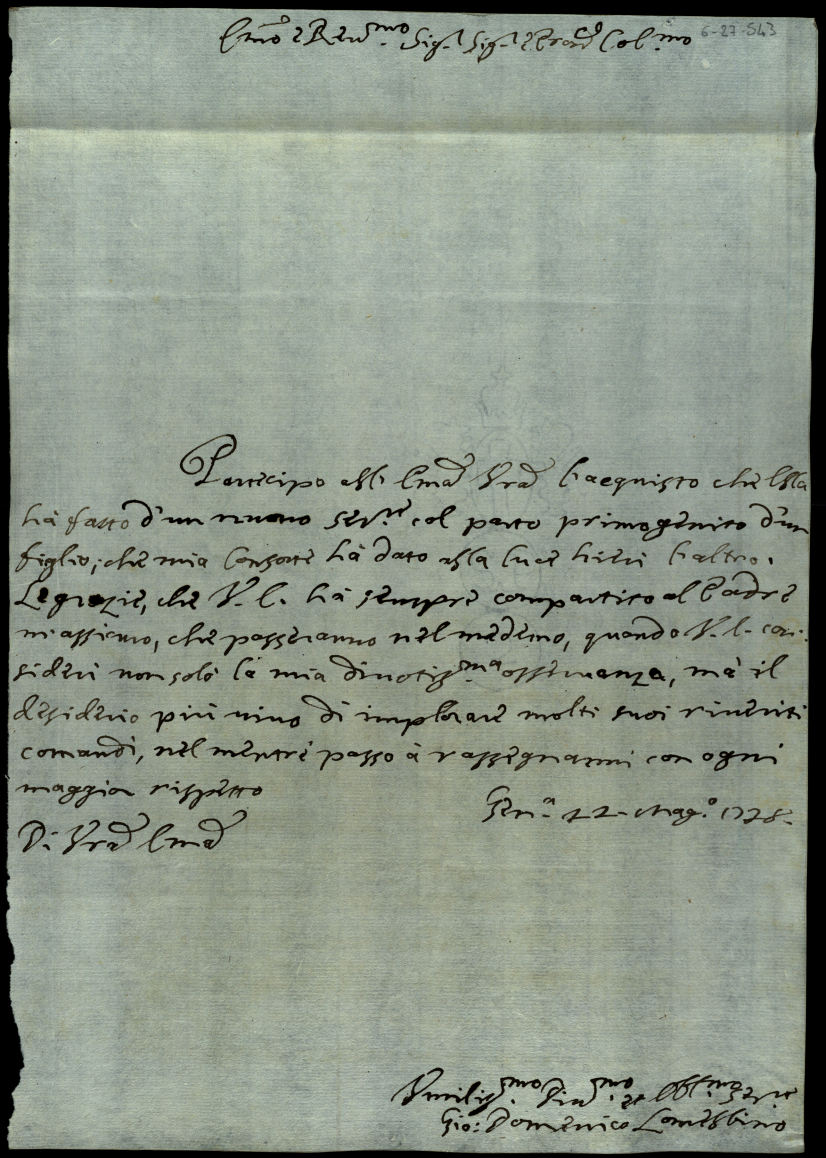 Em͞o e Reu.mo Sig.r Sig.r e Pron͞e Col.mo
6-27-543
Partecipo all' Em͞a Vr͞a l'acquisto che Ella
hà fatto d'un nuouo seru.re col parto primogenito d'un
figlio, che mia Consorte hà dato alla luce hieri l'altro.
Le grazie, che V. E. hà sempre compartito al Padre
m'assicuro, che passeranno nel medemo, quando V. E. con:
sideri non solo la mia diuotiss.ma osseruanza, mà il
desiderio più uiuo di implorare molti suoi riueriti
comandi, nel mentre passo à rassegnarmi con ogni
maggior rispetto
Gen.a 22 Mag.o 1728.
Di Vr͞a Em͞a
Vmiliss.mo Diu.mo et Obl.mo Seru.re
Gio: Domenico Lomellino